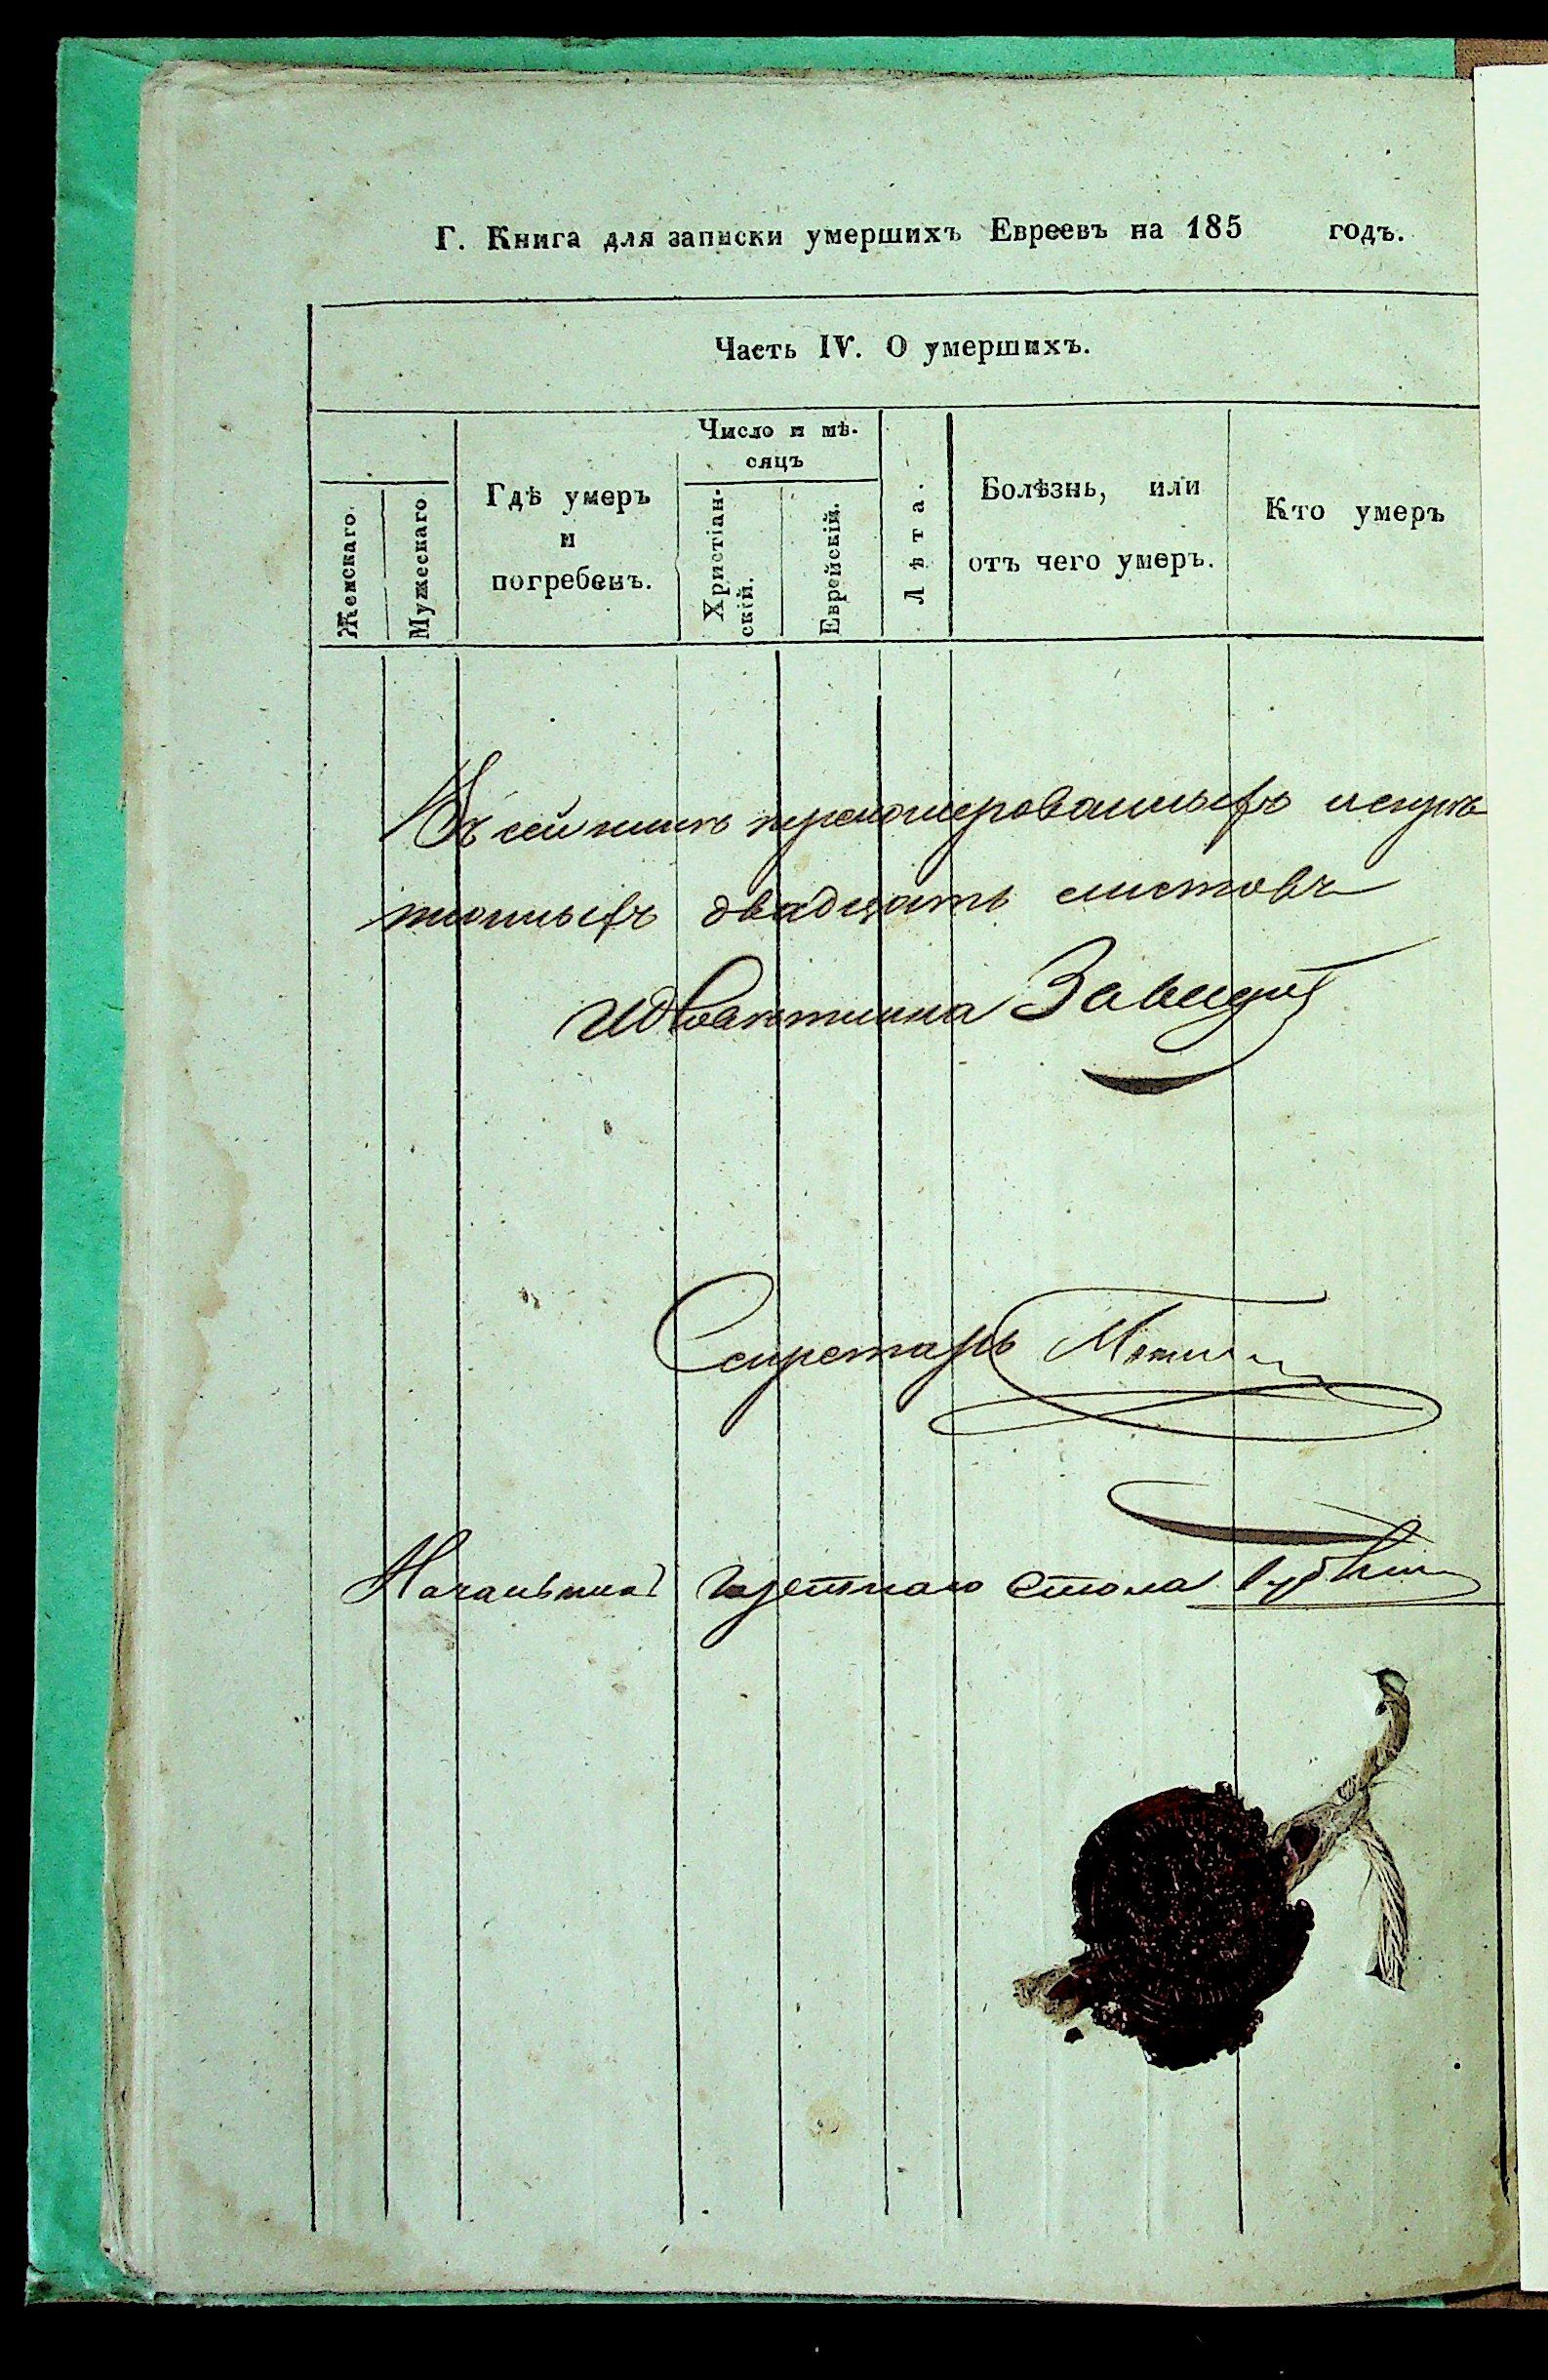 Г. Книга для записки умершихъ Евреевъ на 185 годъ.
Часть IV. О умершихъ.
Женскаго.
Мужескаго
Гдѣ умеръ
и
погребенъ.
Число и мѣ-
сяцъ
Христіан-
скій.
Еврейскій.
Лѣта.
Болѣзнь, или
отъ чего умеръ.
Кто умеръ
Въ сей книгѣ пронумерованныхъ
двадцать листовъ
Секретарь
Начальникъ стола